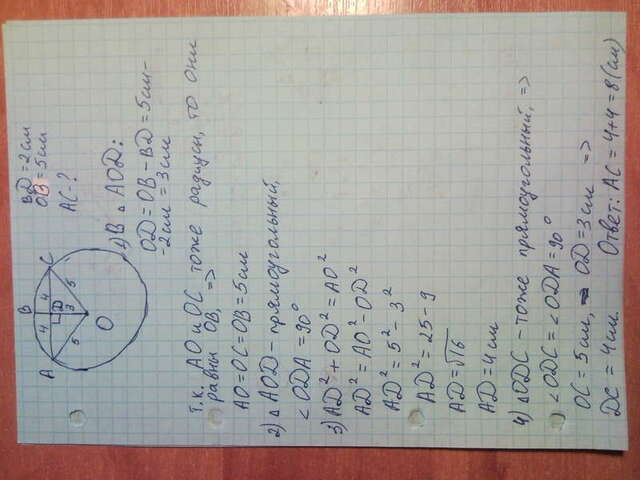 B
A 4 4 C
D
5 3 5
O
BD = 2 см
OB = 5 см
AC - ?
1) В △ AOD:
OD = OB - BD = 5 см -
- 2 см = 3 см
Т.к. AO и OC тоже радиусы, то они
равны OB, =>
AO = OC = OB = 5 см
2) △ AOD - прямоугольный,
< ODA = 90°
3) AD² + OD² = AO²
AD² = AO² - OD²
AD² = 5² - 3²
AD² = 25 - 9
AD = √16
AD = 4 см
4) △ ODC - тоже прямоугольный, =>
< ODC = < ODA = 90°
OC = 5 см, OD = 3 см =>
DC = 4 см. Ответ: AC = 4 + 4 = 8 (см)